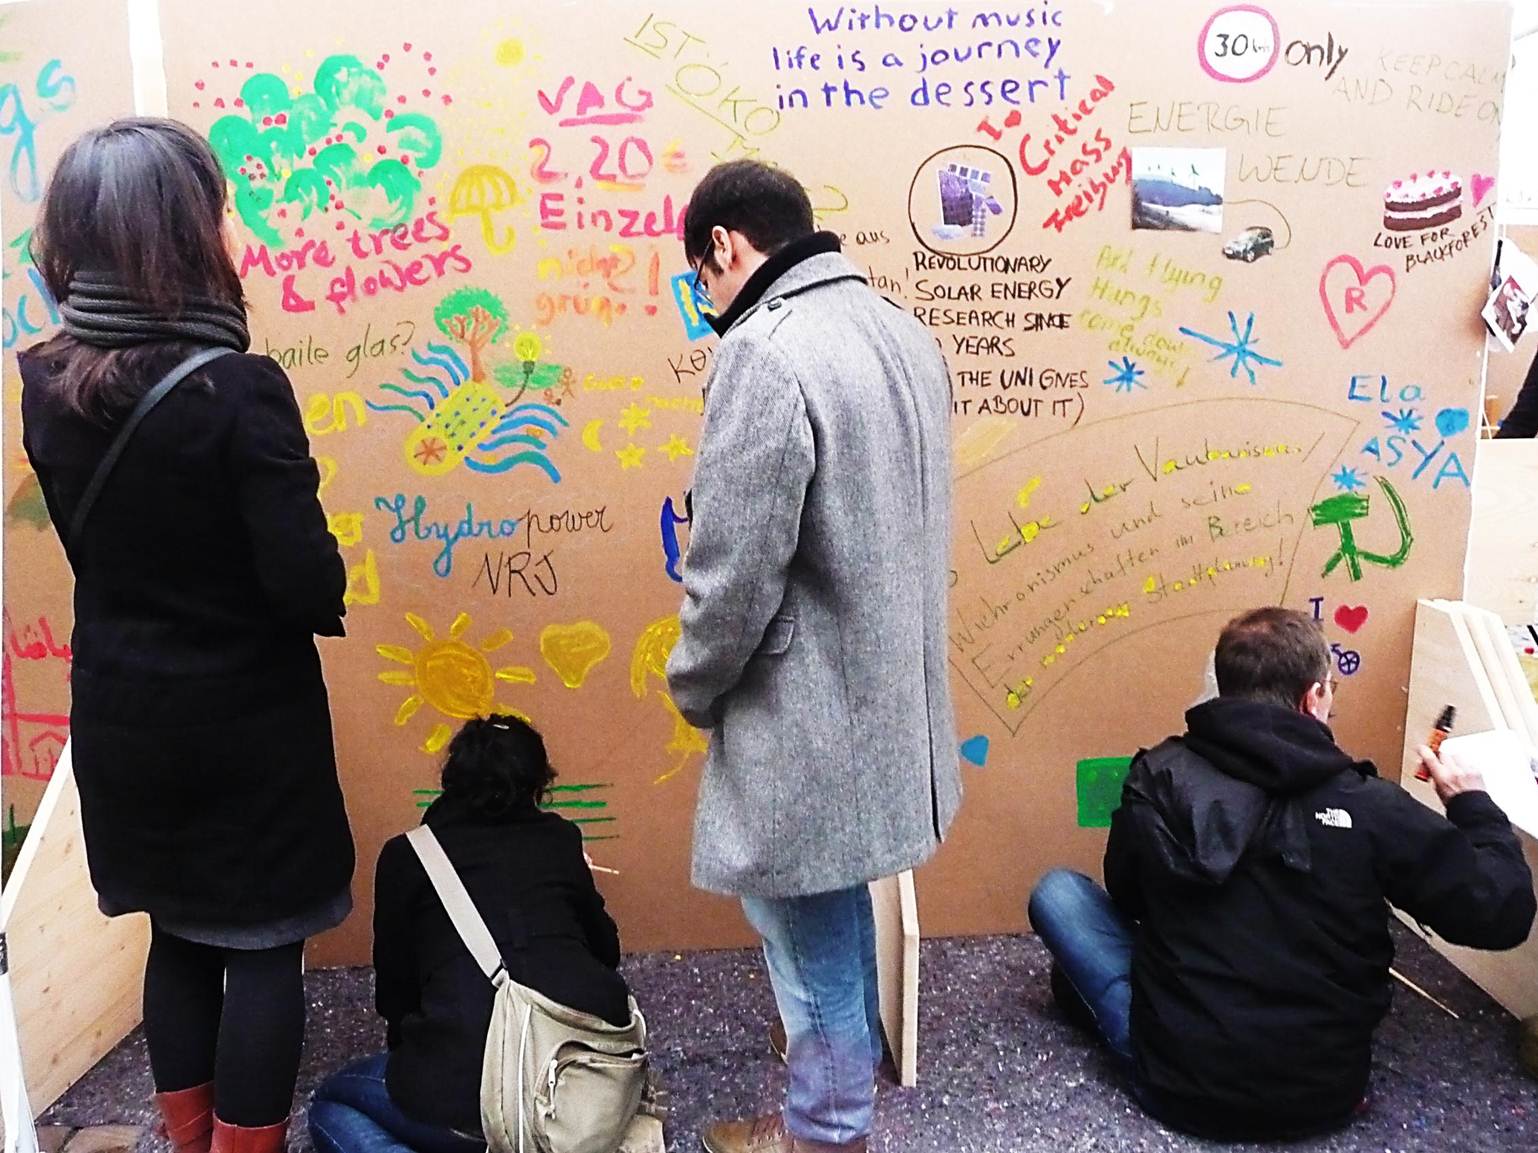 Without music
life is a journey
in the dessert
30 km only
KEEP CALM
AND RIDE ON
IST ÖKO
VAG
2,20 €
Einzel
nicht
grün!
More trees
& flowers
I ♥
Critical
Mass
Freiburg
ENERGIE
WENDE
LOVE FOR
BLACKFOREST
R
REVOLUTIONARY
SOLAR ENERGY
RESEARCH SINCE
YEARS
THE UNI GNES
IT ABOUT IT)
And flying
Things
come down
always!
aus
glas?
en
Hydropower
NRJ
Ela
ASYA
Lebe der Vaubanismus!
Wiehronismus und seine
Errungenschaften im Bereich
der modernen Stadtplanung!
I ♥
THE
NORTH
FACE